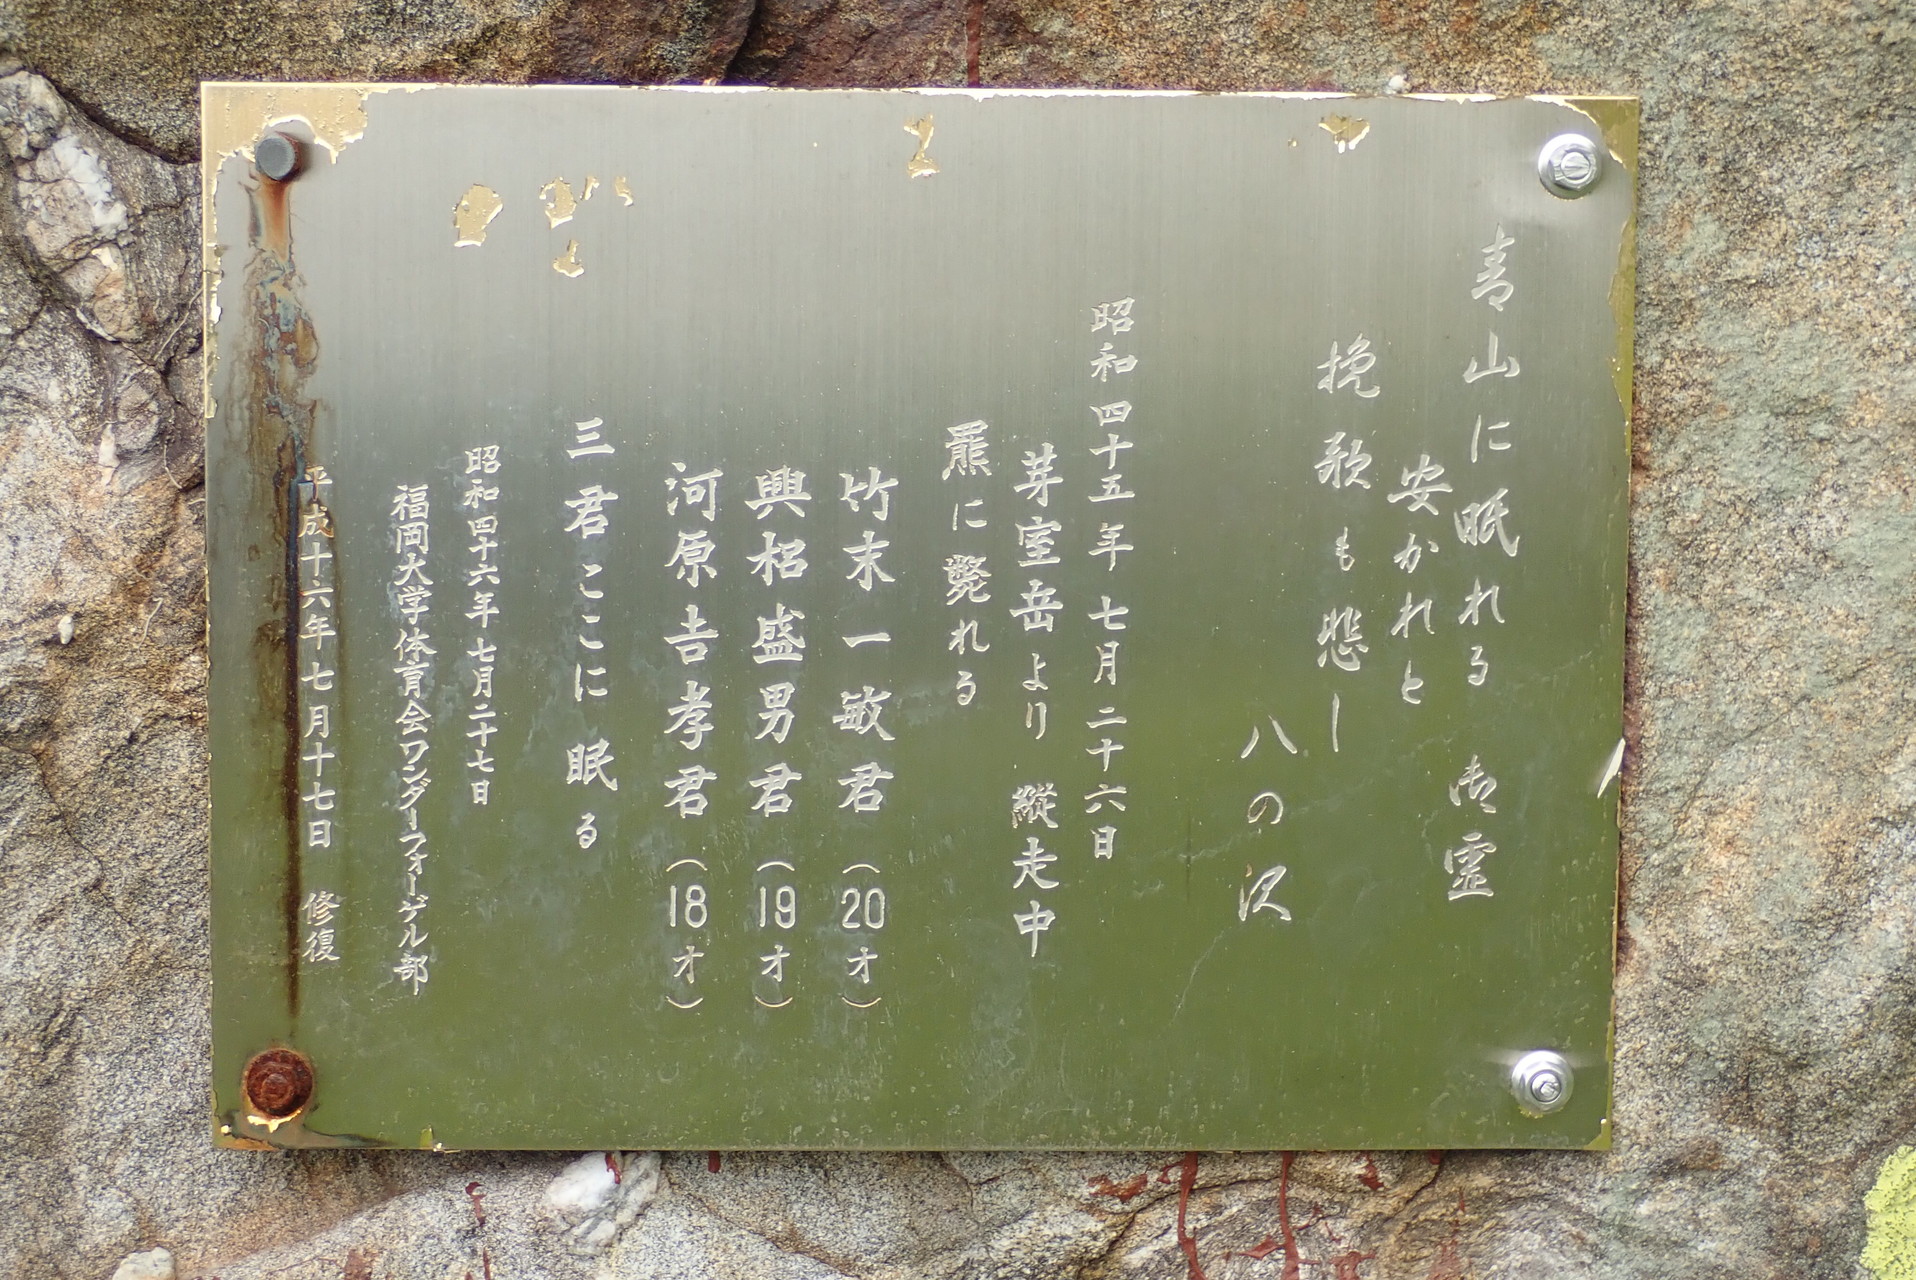 青山に眠れる 御霊
安かれと
挽歌も悲し
八の沢
昭和四十五年 七月 二十六日
芽室岳より 縦走中
羆に斃れる
竹末一敏君（20才）
興梠盛男君（19才）
河原𠮷孝君（18才）
三君ここに 眠る
昭和四十六年 七月二十七日
福岡大学体育会ワンダーフォーゲル部
平成十六年七月十七日 修復